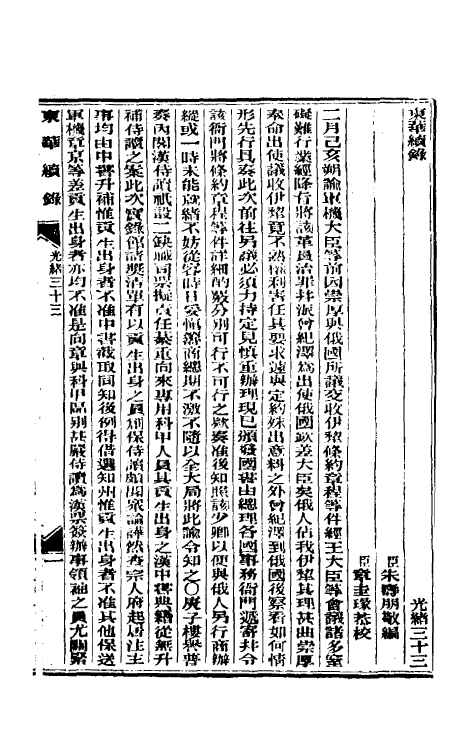 東華續錄
光緒三十三
臣朱壽朋敬編
臣章圭瑑恭校
二月己亥朔諭軍機大臣等前因崇厚與俄國所議交收伊犁條約章程等件經王大臣等會議諸多窒
礙難行業經降旨將該革員治罪并派曾紀澤為出使俄國欽差大臣矣俄人佔我伊犁其理甚曲崇厚
奉命出使議收伊犁竟不熟權利害任其要求遽與定約殊出意料之外曾紀澤到俄國後察看如何情
形先行具奏此次前往另議必須力持定見慎重辦理現已頒發國書由總理各國事務衙門遞寄并令
該衙門將條約章程等件詳細酌覈分別可行不可行之款奏准後知照該少卿以便與俄人另行商辦
縱或一時未能就緒不妨從容時日妥慎籌商總期不激不隨以全大局將此諭令知之○庚子樓譽普
奏內閣漢侍讀祇設二缺職司票擬責任綦重向來專用科甲人員其貢生出身之漢中書典籍從無升
補侍讀之案此次實錄館請獎清單有以貢生出身之員躐保侍讀頗聞眾論譁然查宗人府起居注主
事均由中書升補惟貢生出身者不准中書截取同知後例得借選知州惟貢生出身者不准其他保送
軍機章京等差貢生出身者亦均不准是向章與科甲區別甚嚴侍讀為漢票簽辦事領袖之員尤關緊
東華續錄
光緒三十三
一